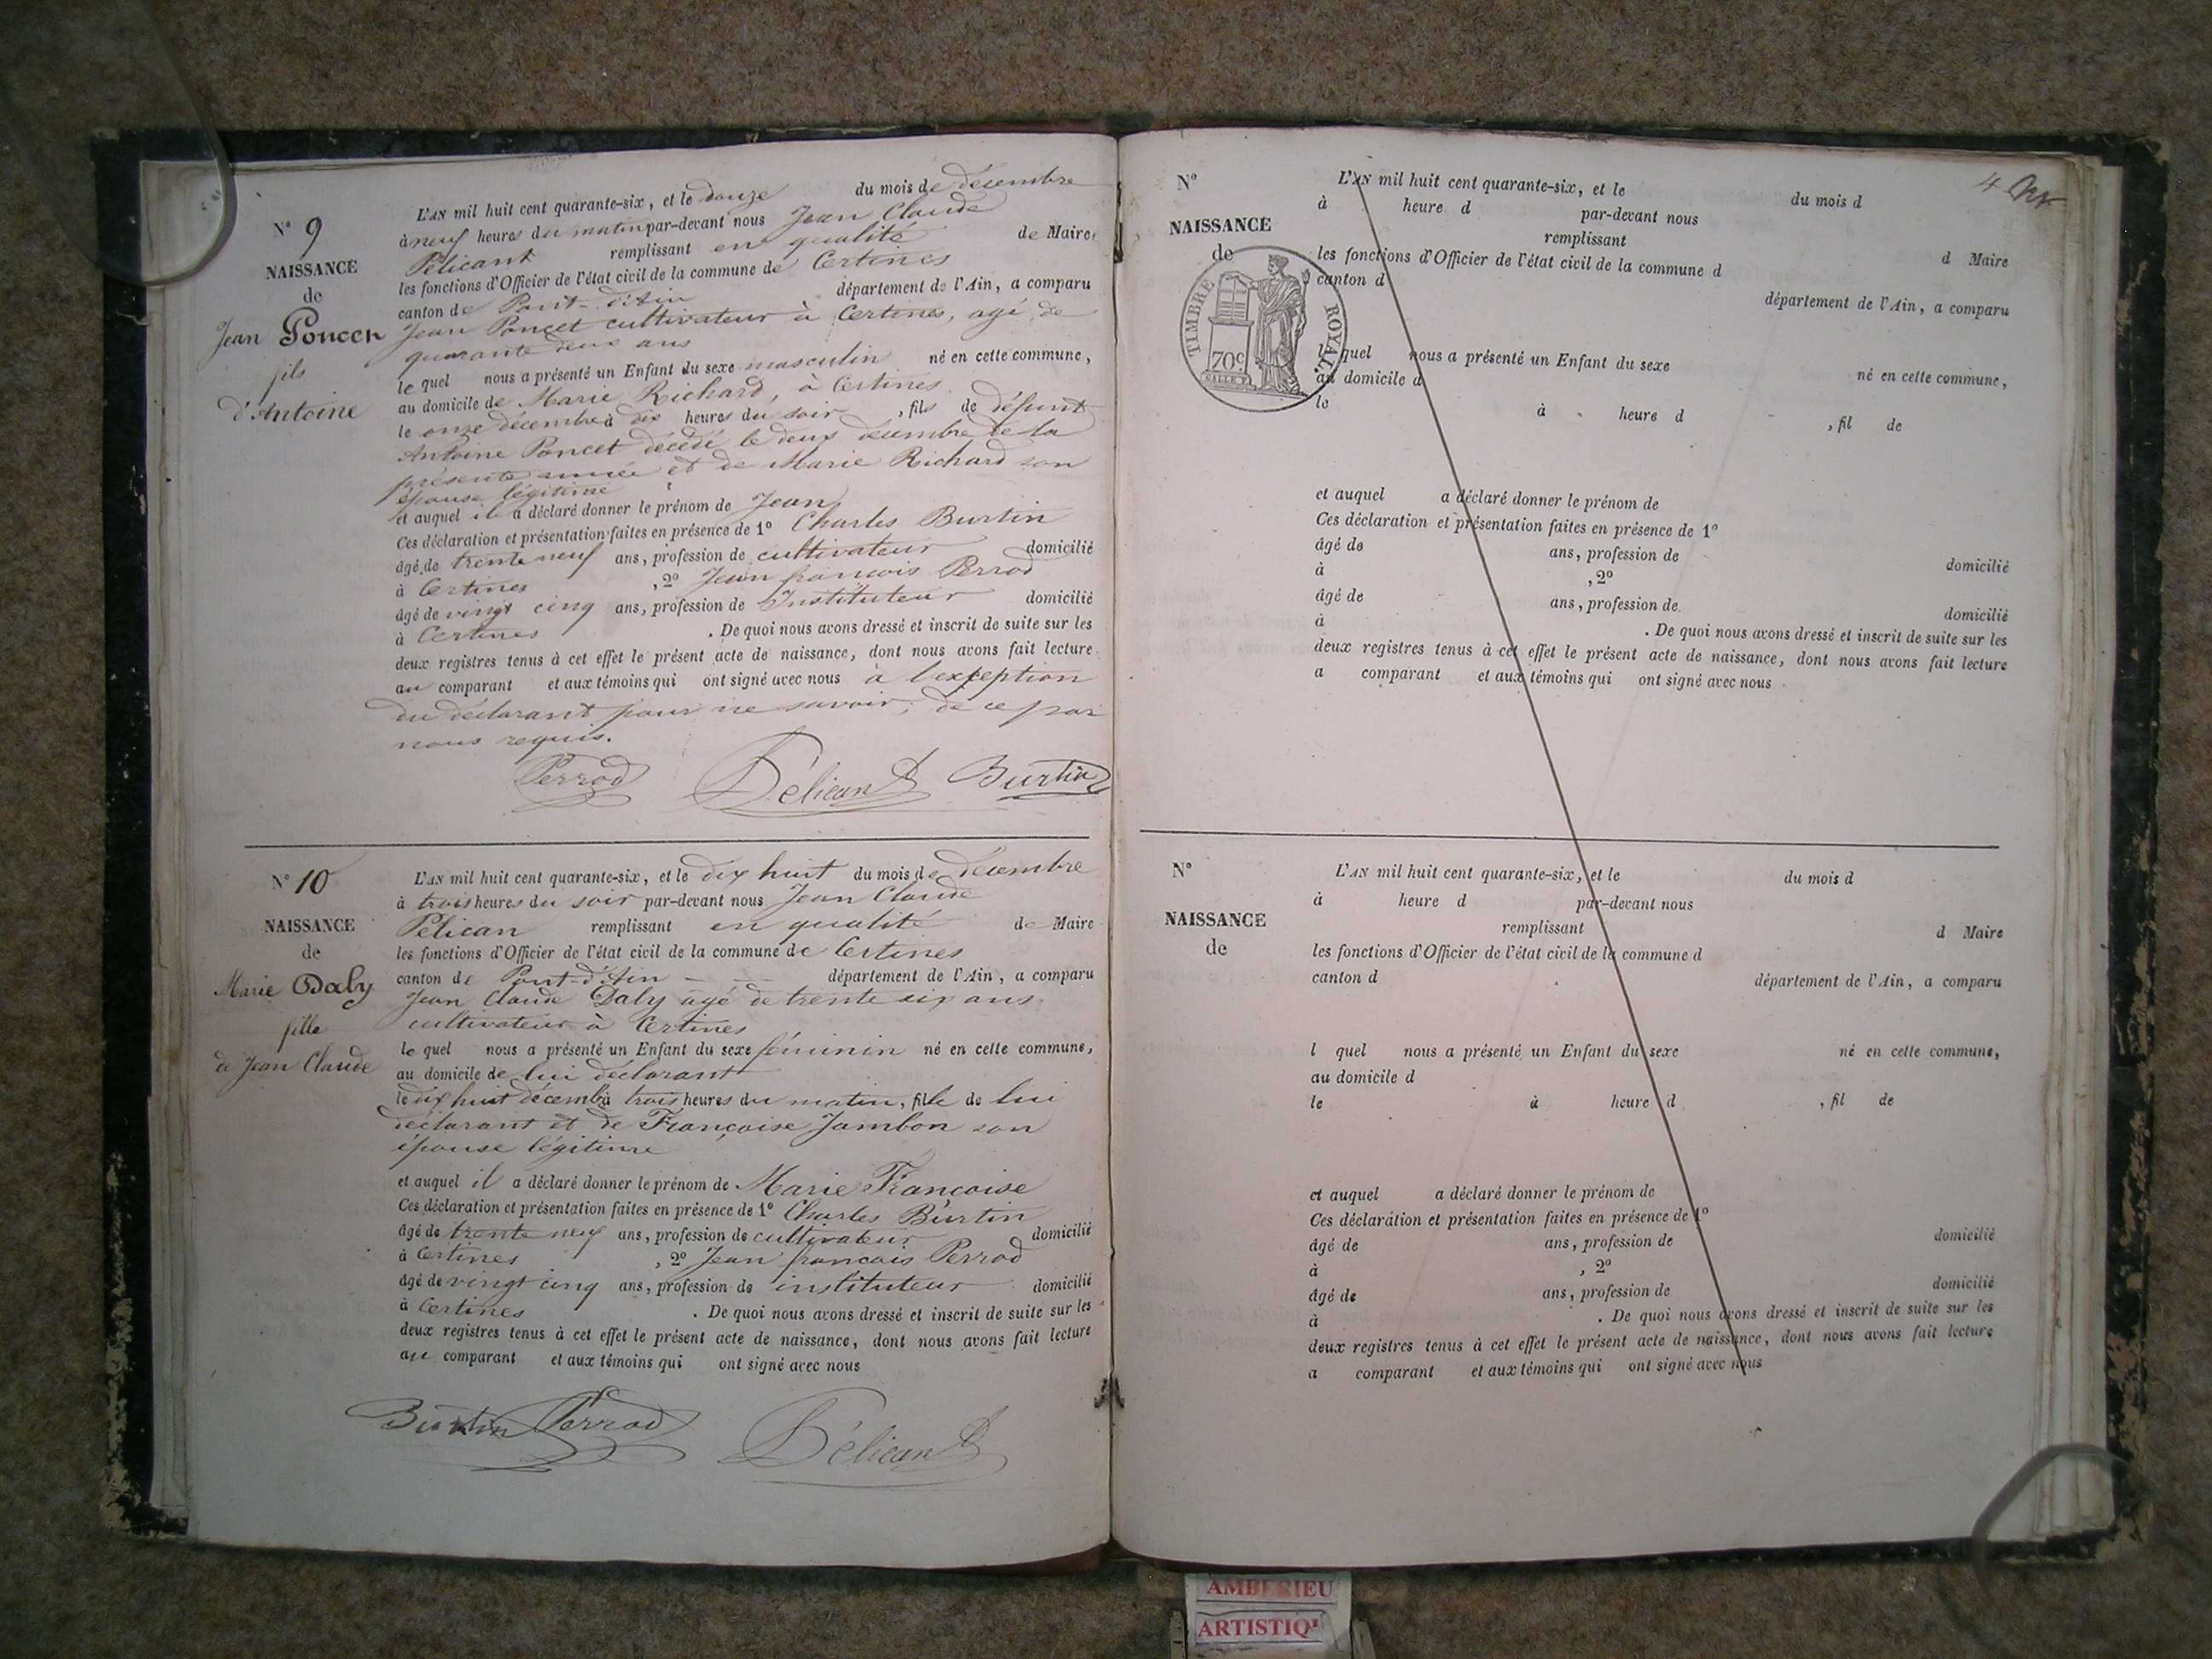 N° 9
NAISSANCE
de
Jean Poncet
fils
d'Antoine
L'AN mil huit cent quarante-six, et le douze du mois de décembre
à neuf heures du matin par-devant nous Jean Claude
Pélicant remplissant en qualité de Maire
les fonctions d'Officier de l'état civil de la commune de Certines
canton de Pont-d'Ain département de l'Ain, a comparu
Jean Poncet cultivateur à Certines, agé de
quarante deux ans
le quel nous a présenté un Enfant du sexe masculin né en cette commune,
au domicile de Marie Richard, à Certines
le onze décembre à dix heures du soir, fils de défunt
Antoine Poncet décédé le deux décembre de la
présente année et de Marie Richard son
épouse légitime
et auquel il a déclaré donner le prénom de Jean
Ces déclaration et présentation faites en présence de 1° Charles Burtin
âgé de trente neuf ans, profession de cultivateur domicilié
à Certines, 2° Jean francois Perrod
âgé de vingt cinq ans, profession de Instituteur domicilié
à Certines. De quoi nous avons dressé et inscrit de suite sur les
deux registres tenus à cet effet le présent acte de naissance, dont nous avons fait lecture
au comparant et aux témoins qui ont signé avec nous à l'exception
du déclarant pour ne savoir, de ce par
nous requis.
Perrod Pélicant Burtin
N° 10
NAISSANCE
de
Marie Daly
fille
de Jean Claude
L'AN mil huit cent quarante-six, et le dix huit du mois de décembre
à trois heures du soir par-devant nous Jean Claude
Pélican remplissant en qualité de Maire
les fonctions d'Officier de l'état civil de la commune de Certines
canton de Pont-d'Ain département de l'Ain, a comparu
Jean Claude Daly âgé de trente six ans
cultivateur à Certines
le quel nous a présenté un Enfant du sexe féminin né en cette commune,
au domicile de lui déclarant
le dix huit décemb à trois heures du matin, fille de lui
déclarant et de Françoise Jambon son
épouse légitime
et auquel il a déclaré donner le prénom de Marie Françoise
Ces déclaration et présentation faites en présence de 1° Charles Burtin
âgé de trente neuf ans, profession de cultivateur domicilié
à Certines, 2° Jean francois Perrod
âgé de vingt cinq ans, profession de instituteur domicilié
à Certines. De quoi nous avons dressé et inscrit de suite sur les
deux registres tenus à cet effet le présent acte de naissance, dont nous avons fait lecture
au comparant et aux témoins qui ont signé avec nous
Burtin Perrod Pélicant
4
N°
NAISSANCE
de
TIMBRE ROYAL.
70c
L'AN mil huit cent quarante-six, et le du mois d
à heure d par-devant nous
remplissant d Maire
les fonctions d'Officier de l'état civil de la commune d
canton d département de l'Ain, a comparu
l quel nous a présenté un Enfant du sexe né en cette commune,
au domicile d
le à heure d , fil de
et auquel a déclaré donner le prénom de
Ces déclaration et présentation faites en présence de 1°
âgé de ans, profession de domicilié
à , 2°
âgé de ans, profession de domicilié
à . De quoi nous avons dressé et inscrit de suite sur les
deux registres tenus à cet effet le présent acte de naissance, dont nous avons fait lecture
a comparant et aux témoins qui ont signé avec nous
N°
NAISSANCE
de
L'AN mil huit cent quarante-six, et le du mois d
à heure d par-devant nous
remplissant d Maire
les fonctions d'Officier de l'état civil de la commune d
canton d département de l'Ain, a comparu
l quel nous a présenté un Enfant du sexe né en cette commune,
au domicile d
le à heure d , fil de
et auquel a déclaré donner le prénom de
Ces déclaration et présentation faites en présence de 1°
âgé de ans, profession de domicilié
à , 2°
âgé de ans, profession de domicilié
à . De quoi nous avons dressé et inscrit de suite sur les
deux registres tenus à cet effet le présent acte de naissance, dont nous avons fait lecture
a comparant et aux témoins qui ont signé avec nous
AMBERIEU
ARTISTIQ